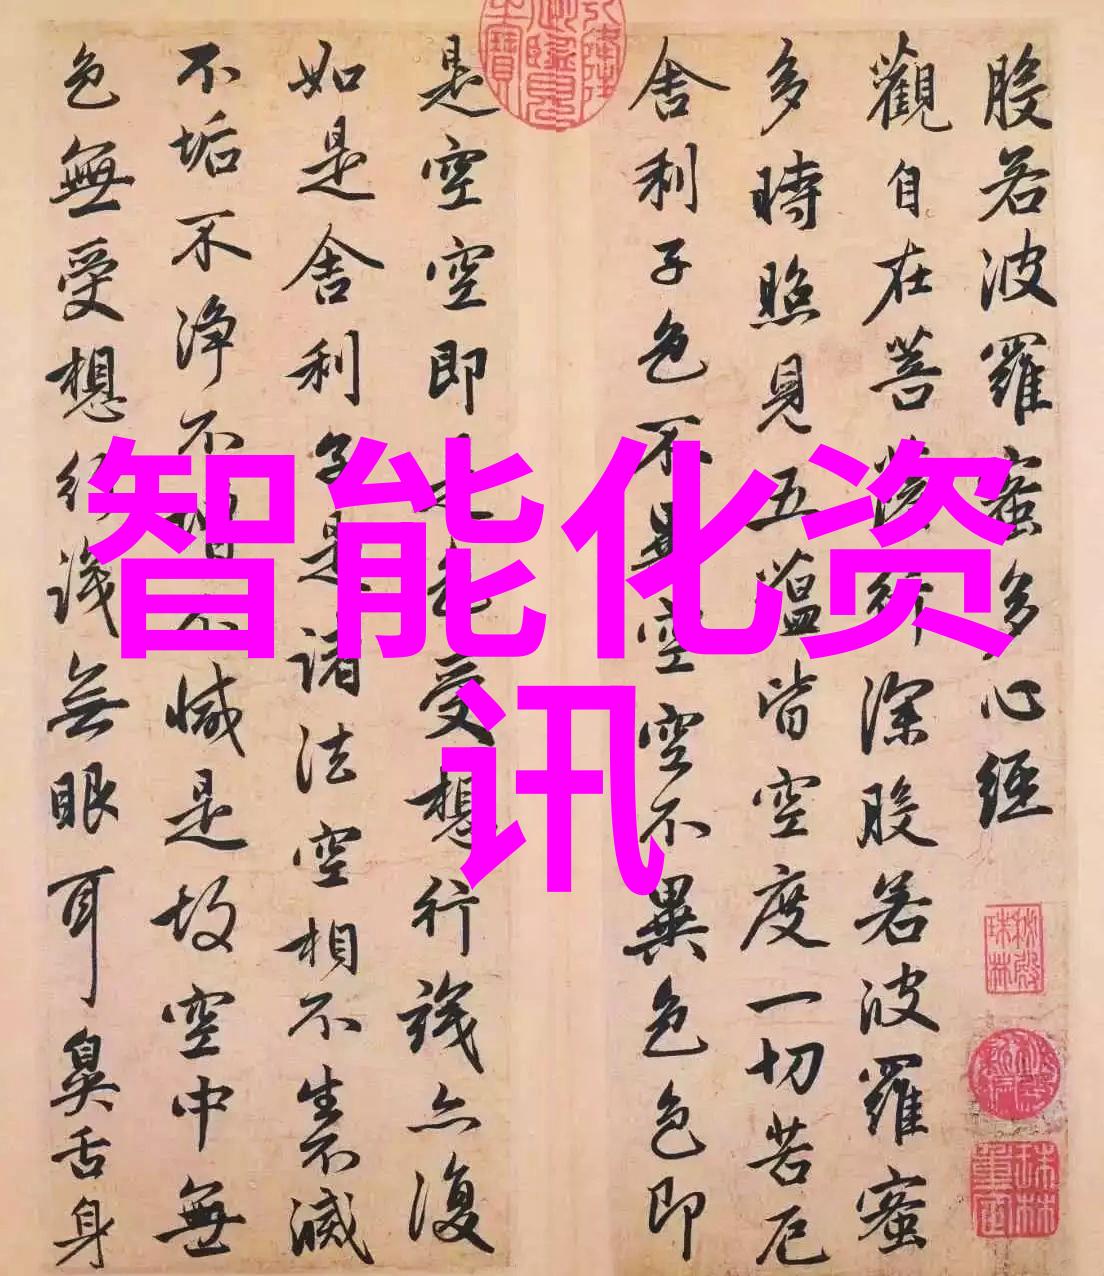 般若波羅蜜多心經
觀自在菩薩行深般若波羅蜜
多時照見五蘊皆空度一切苦厄
舍利子色不異空空不異色色即
是空空即是色受想行識亦復
如是舍利子是諸法空相不生不滅
不垢不淨不增不減是故空中無
色無受想行識無眼耳鼻舌身
智能化资
讯